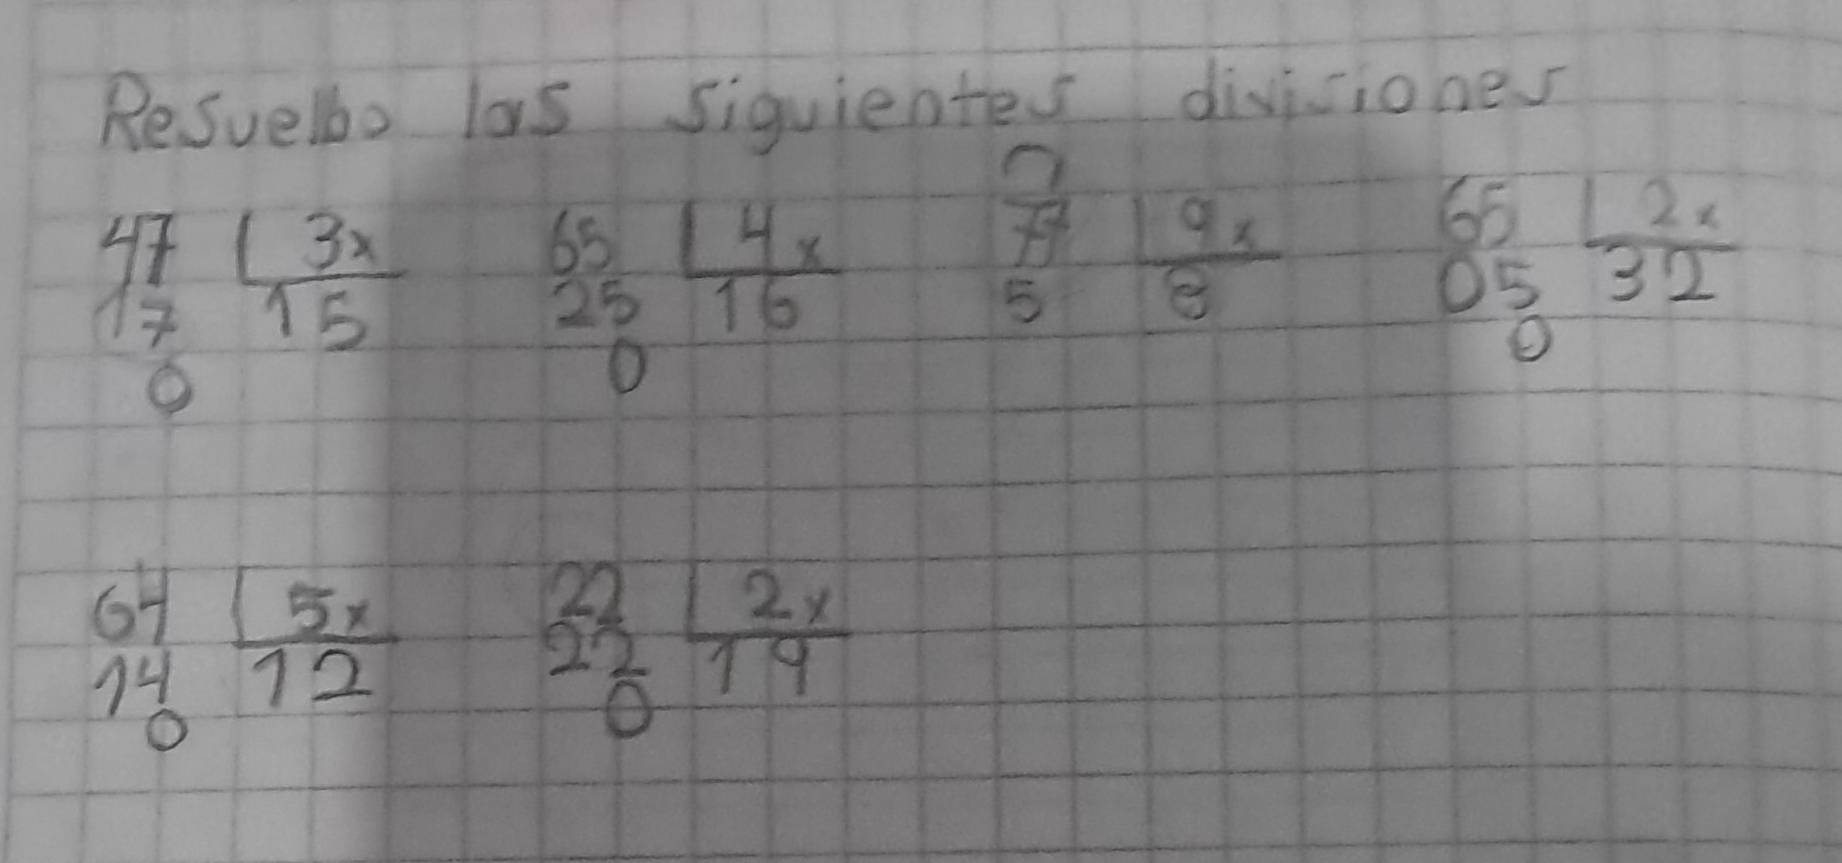 Resuelbo las siguientes divisiones
47 3x 65 4x 77 9x 65 2x
17 15 25 16 5 8 05 32
0 0 0
64 5x 22 2x
14 12 22 19
0 0